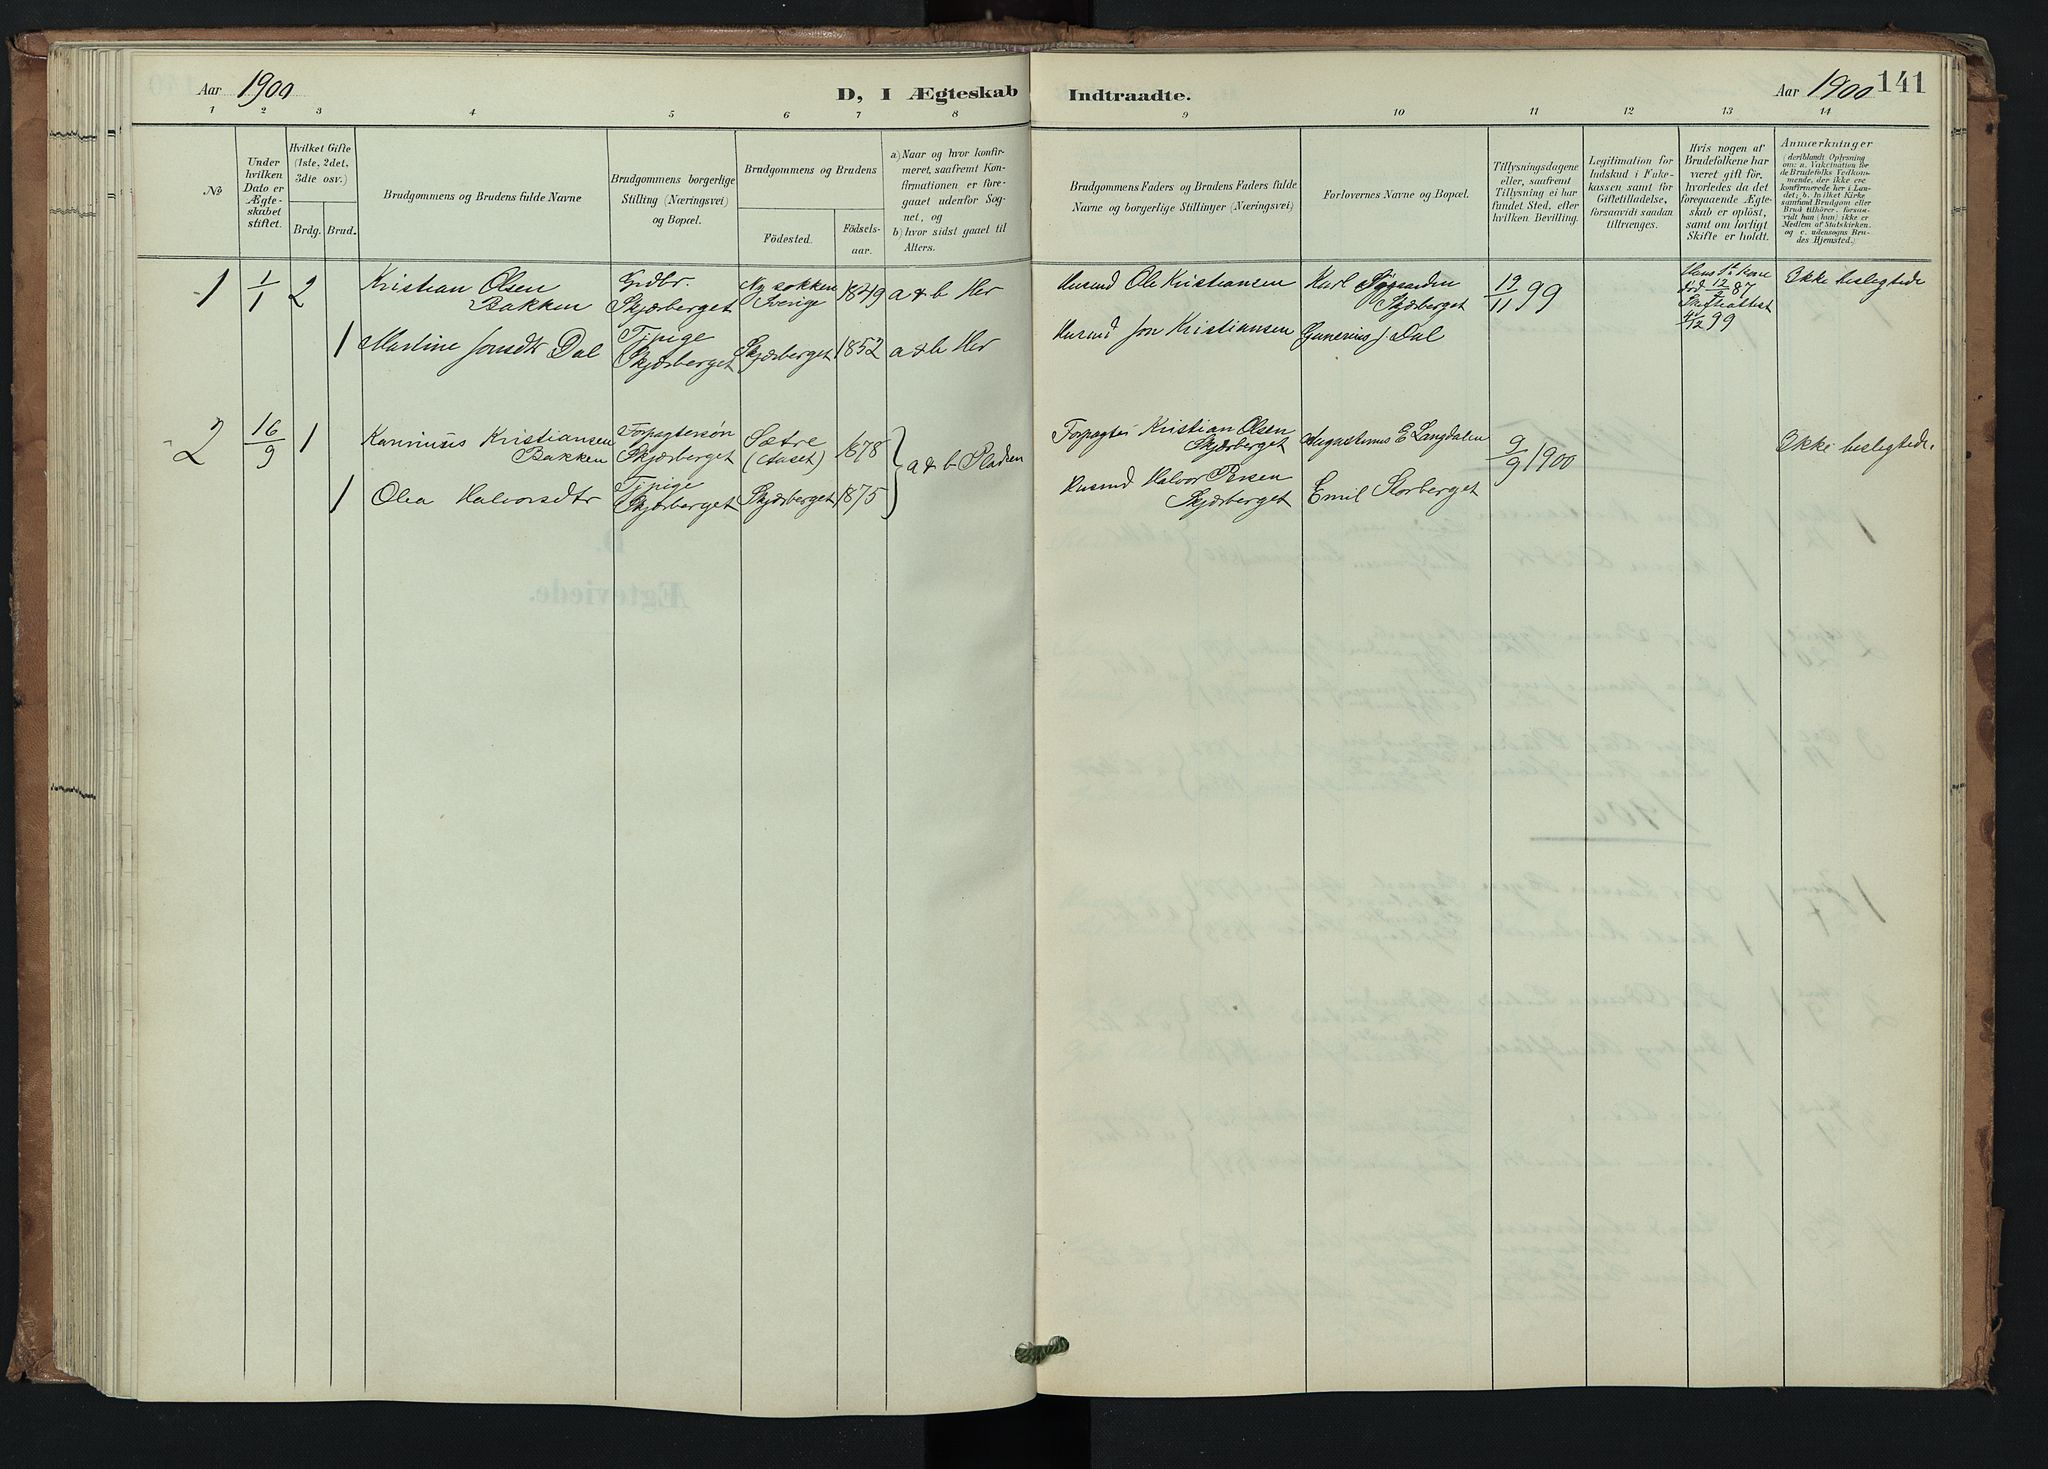 Aar 1900
D, I Ægteskab
Indtraadte.
Aar 1900 141
1 2 3 4 5 6 7 8 9 10 11 12 13 14
No
Under
hvilken
Dato er
Ægte-
skabet
stiftet.
Hvilket Gifte
(1ste, 2det,
3die osv.)
Brdg. Brud.
Brudgommens og Brudens fulde Navne
Brudgommens borgerlige
Stilling (Næringsvei)
og Bopæl.
Brudgommens og Brudens
Födested.
Födsels-
aar.
a) Naar og hvor konfir-
meret, saafremt Kon-
firmationen er fore-
gaaet udenfor Sog-
net, og
b) hvor sidst gaaet til
Alters.
Brudgommens Faders og Brudens Faders fulde
Navne og borgerlige Stillinger (Næringsvei)
Forlovernes Navne og Bopæl.
Tillysningsdagene
eller, saafremt
Tillysning ei har
fundet Sted, efter
hvilken Bevilling.
Legitimation for
Indskud i Enke-
kassen samt for
Giftetilladelse,
forsaavidt saadan
tiltrænges.
Hvis nogen af
Brudefolkene har
været gift för,
hvorledes da det
foregaaende Ægte-
skab er oplöst,
samt om lovligt
Skifte er holdt.
Anmærkninger
(deriblandt Oplysning
om: a. Vakcination for
de Brudefolks Vedkom-
mende, der ikke ere
konfirmerede her i Lan-
det, b. hvilket Kirke-
samfund Brudgom eller
Brud tilhörer, forsaa-
vidt han (hun) ikke er
Medlem af Statskirken,
og c. udensogns Bru-
des Hjemsted.)
1 1/1 2 Kristian Olsen
Bakken
Grdbr.
Skjærberget
Ny sokken
Sverige
1849 a & b Her
Husmd Ole Kristiansen
Karl
Skjærberget
19/11 99
Hans 1ste Kone
död 12/ 87
Skifteattest
/12 99
Ikke beslegtede
1 Martine Jonsdtr Dal
Tjpige
Skjærberget
Skjærberget 1852 a & b Her
Husmd Jon Kristiansen
Gunerius J. Dal
2 16/9 1 Kristiansen
Bakken
Forpagtersön
Skjærberget
Sætre
(Aaset)
1878
a & b Pladsen
Forpagter Kristian Olsen
Skjærberget
Augustinus E Langdalen
9/9 1900
Ikke beslegtede.
1 Olea Halvorsdtr
Tjpige
Skjærberget
Skjærberget 1875
Husmd Halvor Persen
Skjærberget
Emil Storberget